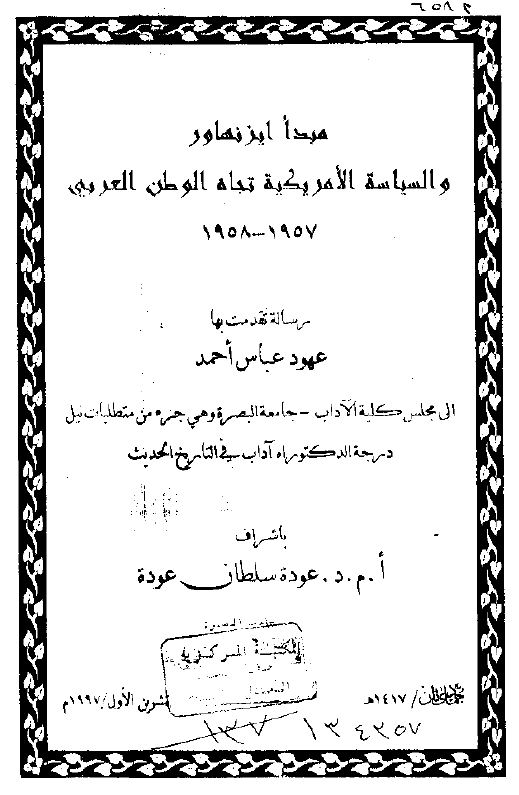 ٦٥٨٢
مبدأ ايزنهاور
والسياسة الأمريكية تجاه الوطن العربي
١٩٥٧-١٩٥٨
رسالة تقدمت بها
عهود عباس أحمد
الى مجلس كلية الآداب - جامعة البصرة وهي جزء من متطلبات نيل
درجة الدكتوراه آداب في التاريخ الحديث
باشراف
أ.م.د. عودة سلطان عودة
المكتبة المركزية
/١٤١٧هـ
تشرين الأول/١٩٩٧م
١٣٧
١٣٤٣٥٧